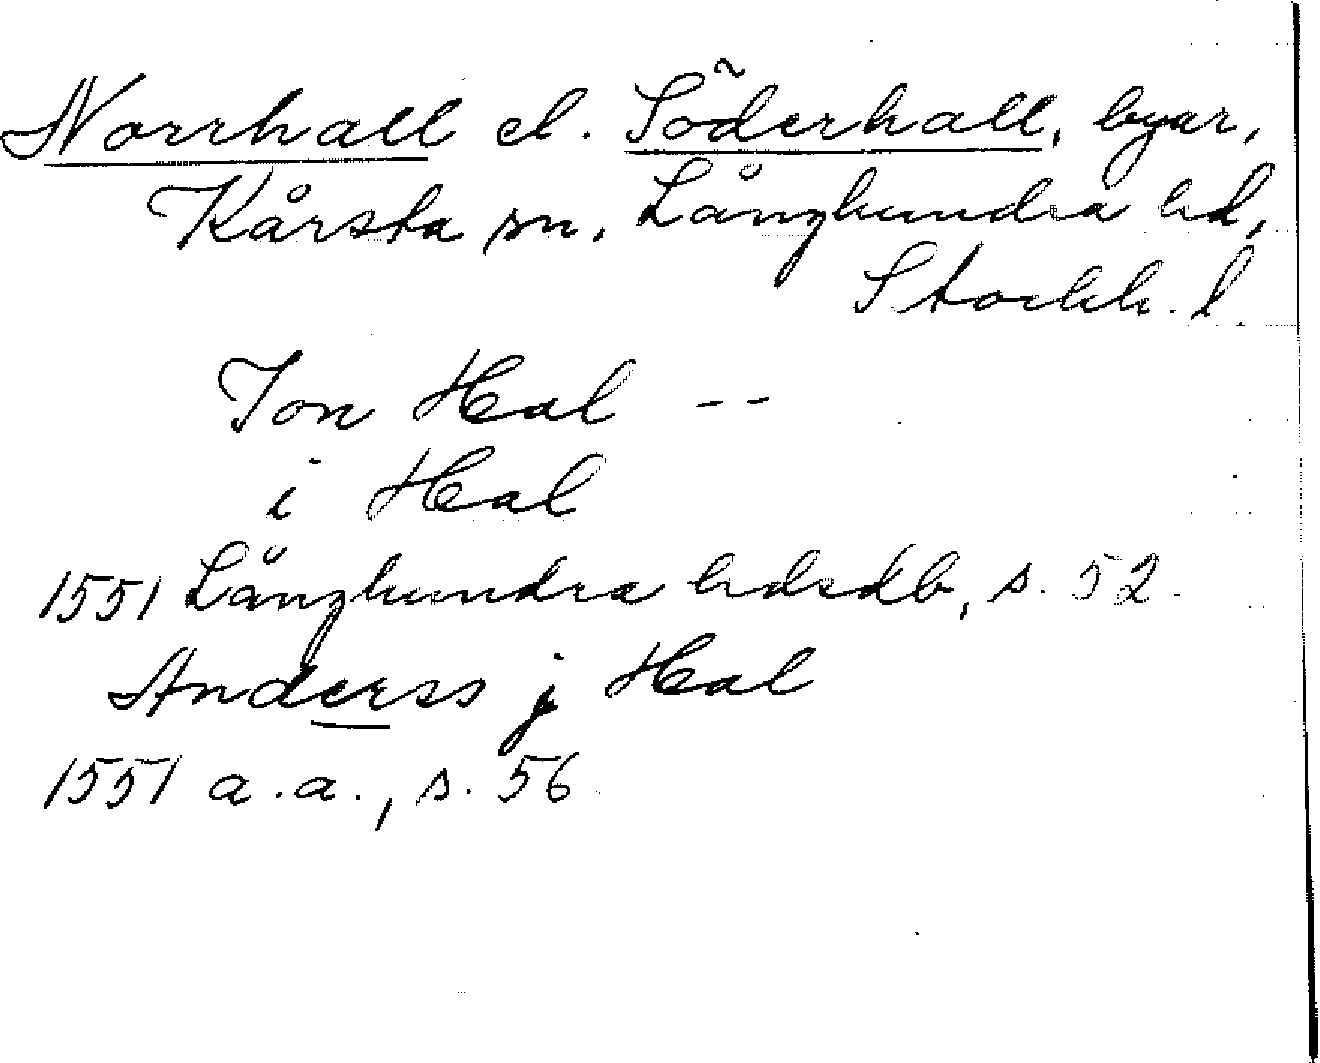 Norrhall el. Söderhall, byar,
Kårsta sn, Långhundra hd,
Stockh. l.
Jon Hal --
i Hal
1551 Långhundra hdsdb, s. 52.
Anderss j Hal
1551 a.a., s. 56